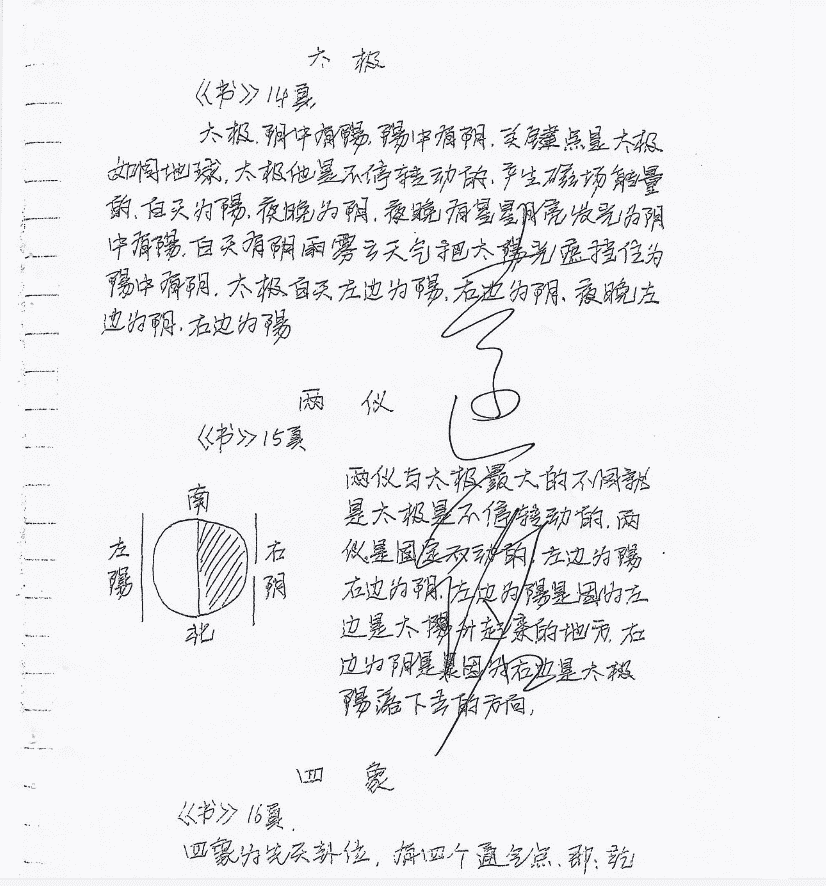 太极
《书》14页
太极.阴中有陽.陽中有阴.关键点是太极
如同地球.太极他是不停转动的.产生磁场能量
的.白天为陽.夜晚为阴.夜晚有星星月亮发光为阴
中有陽.白天有阴雨雾云天气把太陽光遮挡住为
陽中有阴.太极白天左边为陽.右边为阴.夜晚左
边为阴.右边为陽
两仪
《书》15页
两仪与太极最大的不同就
是太极是不停转动的.两
仪是固定不动的.左边为陽
右边为阴.左边为陽是因为左
边是太陽升起来的地方.右
边为阴是因为右边是太极
陽落下去的方向.
南
左陽
右阴
北
四象
《书》16页.
四象为先天卦位,有四个通气点.即:乾